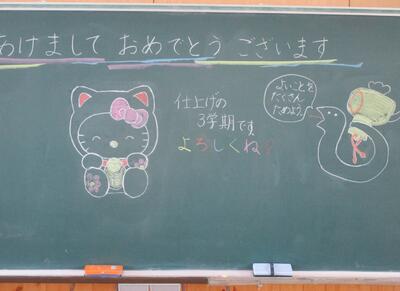 あけまして おめでとう ございます
仕上げの
3学期です
よろしくね!
よいことを
たくさん
ためよう